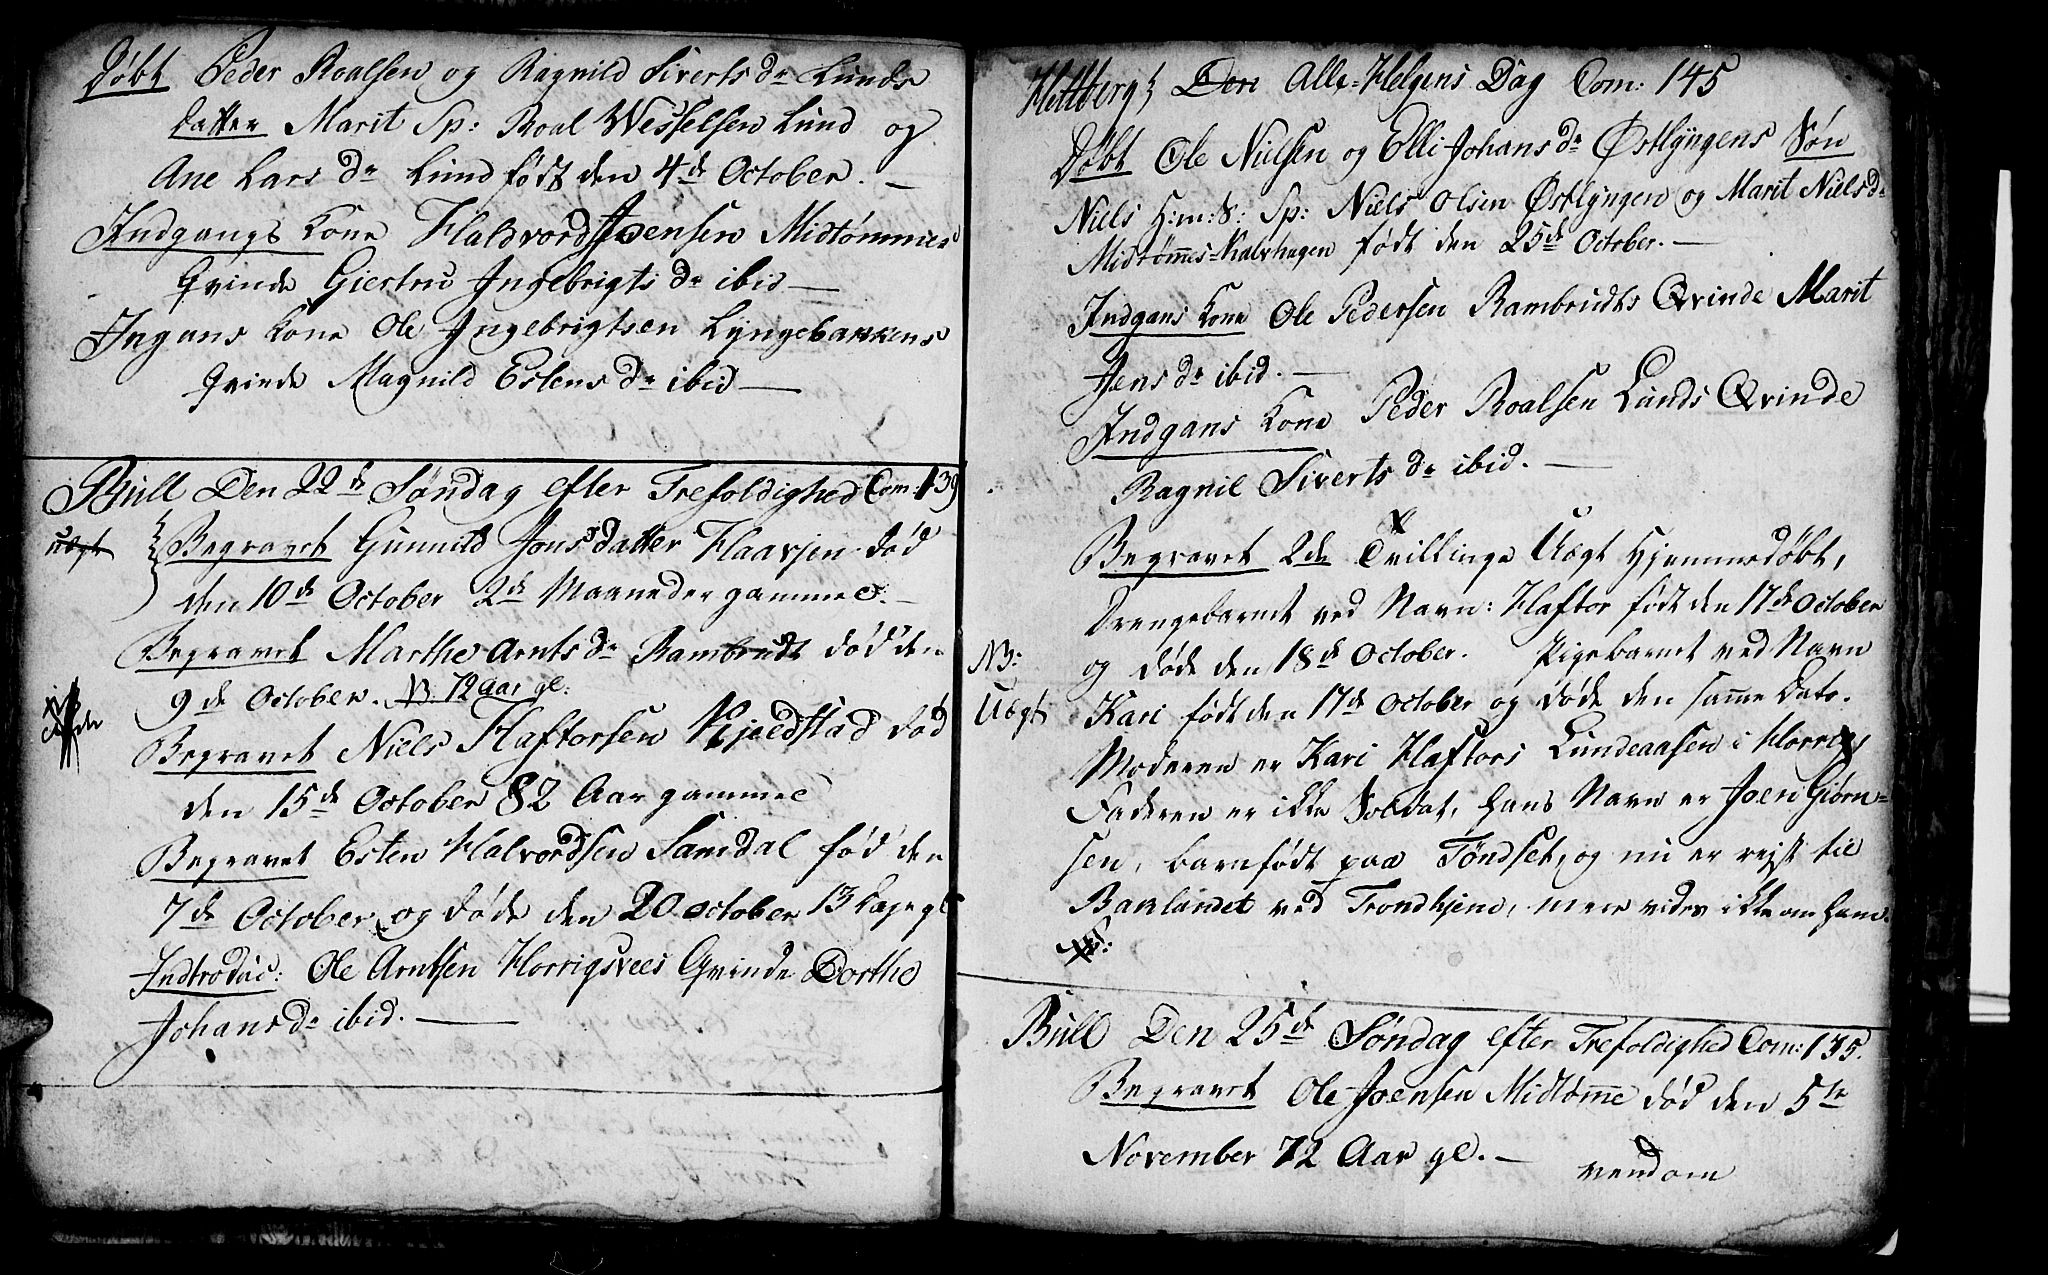 Døbt Peder Roalsen og Ragnild Siverts Dr Lunds
datter Marit Sp: Roal Wesselsen Lund og
Ane Lars Dr Lund født den 4de October. —
Indgangs Kone Haldvord Joensen Midtømmes
Qvinde Giertru Ingebrigts Dr ibid —
Ingans Kone Ole Ingebrigtsen Lyngebakkens
Qvinde Magnild Estens Dr ibid —
Bull Den 22de Søndag efter Trefoldighed Com: 139
uægt Begravet Gunnild Jons datter Haarsjen død
den 10de October 2de Maaneder gammel. —
Begravet Marthe Arnts Dr Rambrudt død den
9de October. NB. 72 Aar gl:
Begravet Niels Haftorsen Kjeldstad død
den 15de October 82 Aar gammel
Begravet Esten Halvordsen Samdal fød den
7de October og døde den 20 October 13 Dage gl
Indtroduc: Ole Arntsen Horrigsvees Qvinde Dorthe
Johans Dr ibid. —
Hettberg Den Alle-Helgens Dag Com: 145
Døbt Ole Nielsen og Elli Johans Dr Østlyngens Søn
Niels H:m:S: Sp: Niels Olsen Østlyngen og Marit Niels Dr
Midtømmes-Kalvhagen født den 25de October. —
Indgans Kone Ole Pedersen Rambrudts Qvinde Marit
Jens Dr ibid. —
Indgans Kone Peder Roalsen Lunds Qvinde
Ragnil Siverts Dr ibid. —
Begravet 2de Tvillinge Uægt Hjemmedøbt,
Drengebarnet ved Navn: Haftor født den 17de October
NB: og døde den 18de October. Pigebarnet ved Navn
Uægt Kari født den 17de October og døde den samme Dato.
Moderen er Kari Haftors Lundeaasen i Horrigs
Faderen er ikke Soldat, hans Navn er Joen Giørn-
sen, barnfødt paa Tøndset, og nu er rejst til
Baklandet ved Trondhjem, mere vides ikke om ham
Bull Den 25de Søndag efter Trefoldighed Com: 135.
Begravet Ole Joensen Midtømme død den 5te
November 72 Aar gl. —
vendom